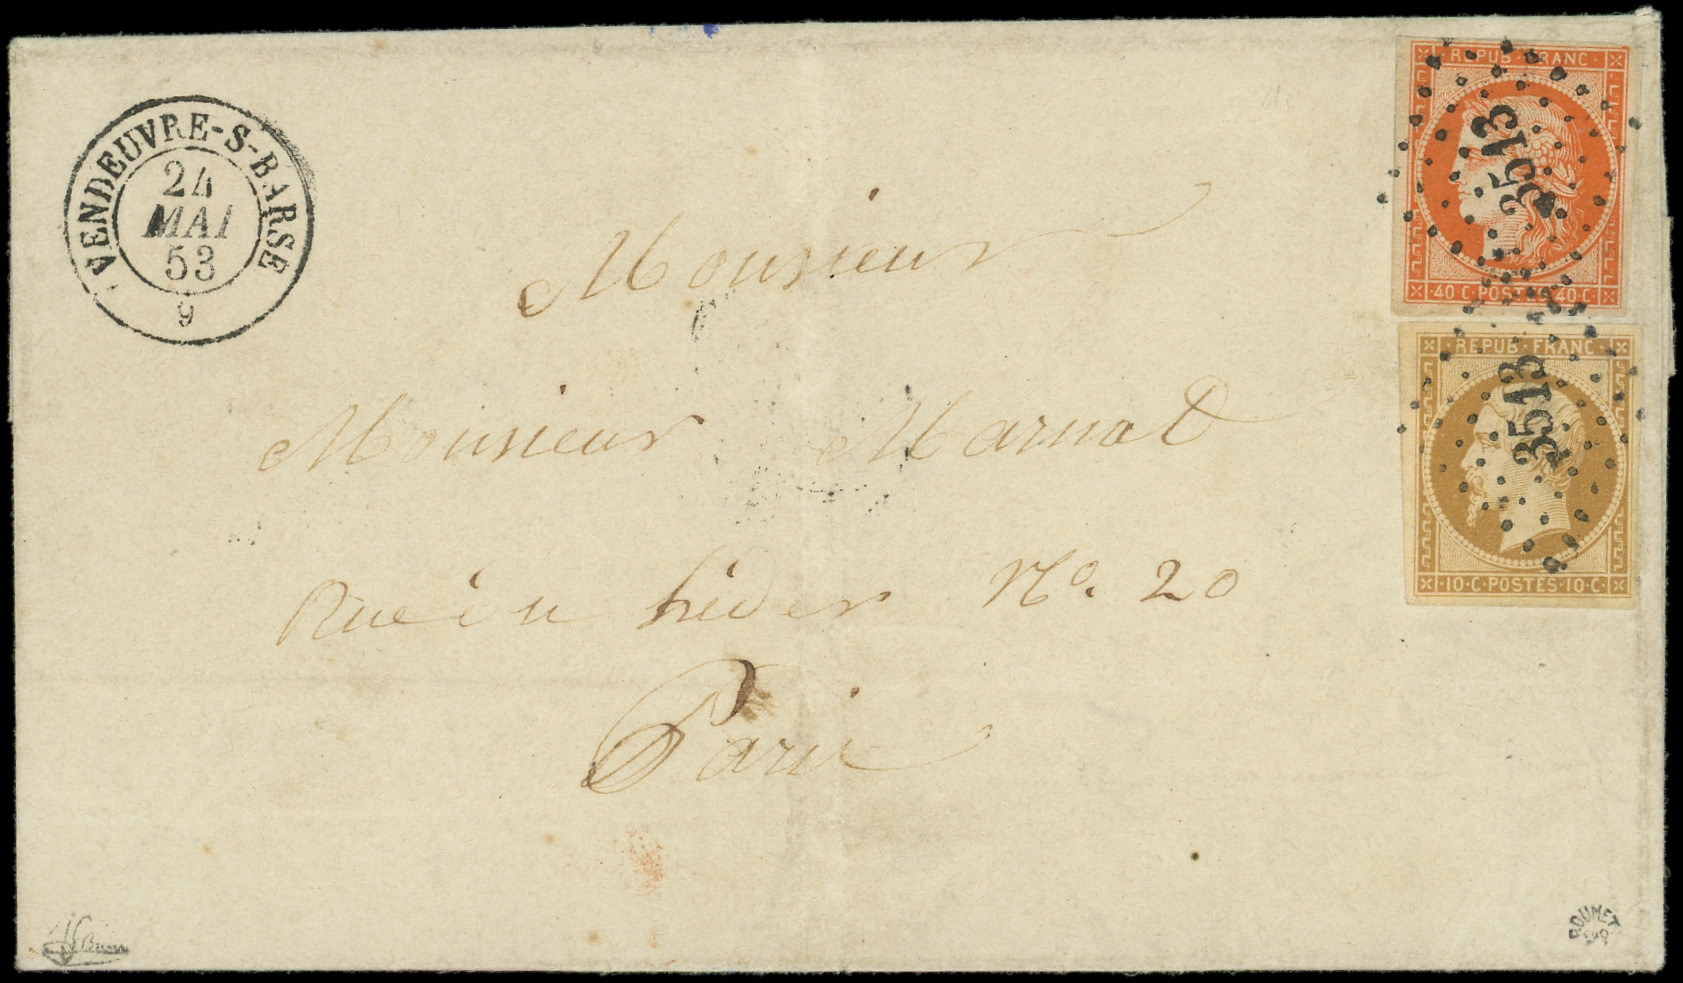 VENDEUVRE-S-BARSE
24
MAI
53
9
REPUB·FRANC·
3513
40·C·POSTES·40·C·
REPUB·FRANC·
3513
10·C·POSTES·10·C·
Monsieur
Monsieur
Rue du No. 20
Paris
ROUMET